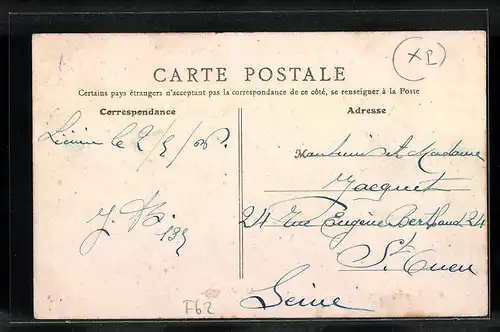 CARTE POSTALE
Certains pays étrangers n'acceptant pas la correspondance de ce côté, se renseigner à la Poste
Correspondance
Adresse
le 2/5/
Monsieur et Madame
Jacquet
24 Rue Eugène Berthoud 24
St Ouen
Seine
F62